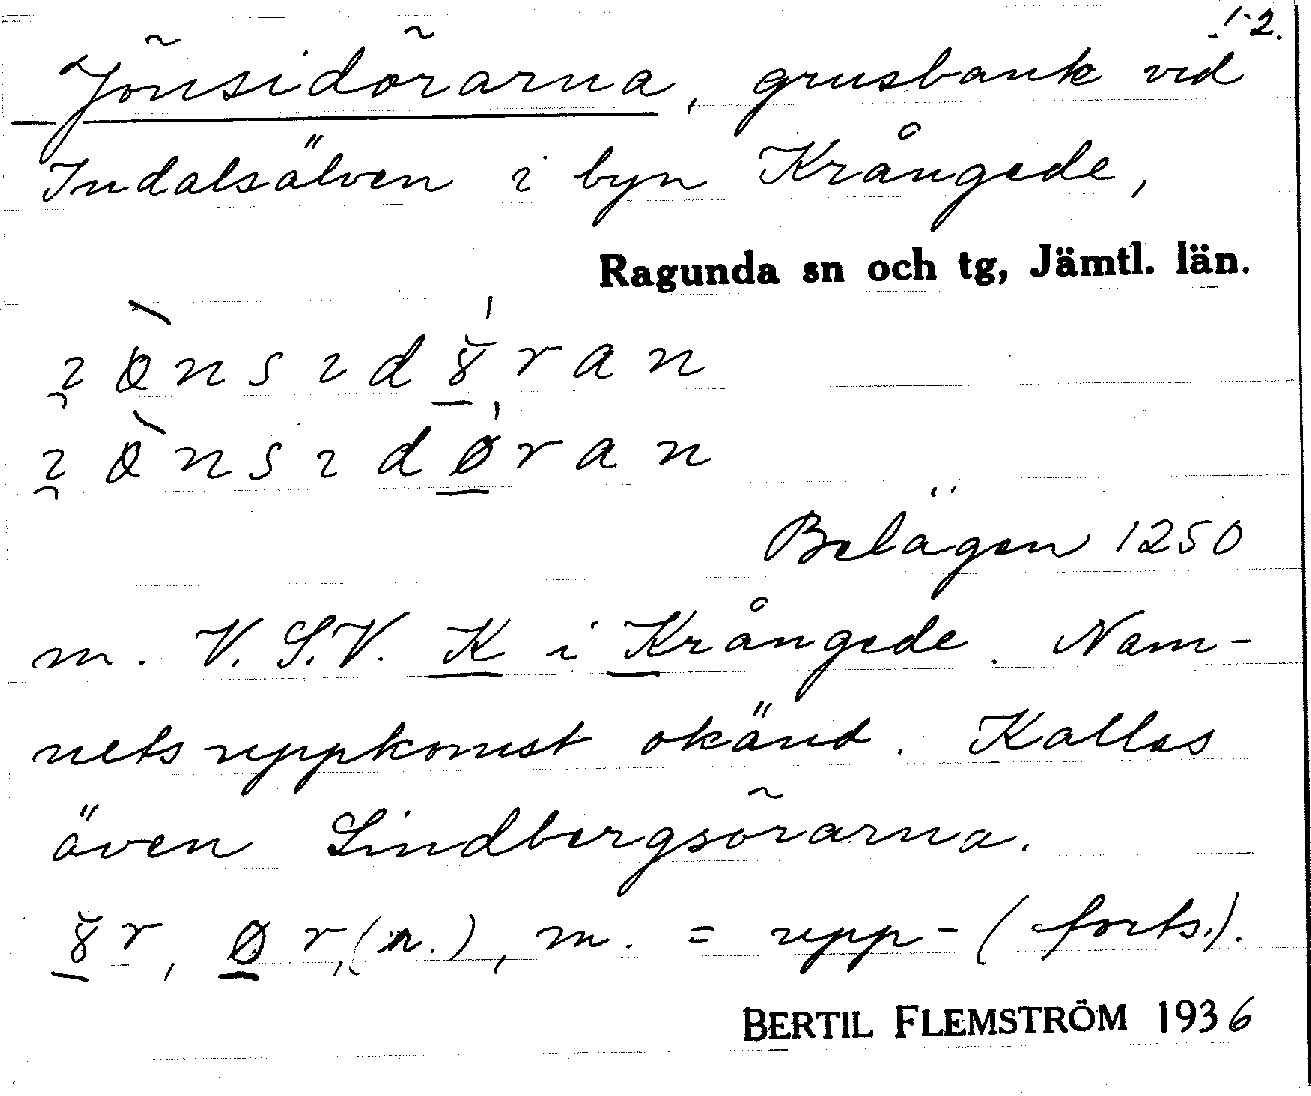 1-2.
Jönsidörarna, grusbank vid
Indalsälven i byn Krångede,
Ragunda sn och tg, Jämtl. län.
Belägen 1250
m. V. S.V. K i Krångede. Nam-
nets uppkomst okänd. Kallas
även Lindbergsörarna.
m. = upp- (forts.).
BERTIL FLEMSTRÖM 1936